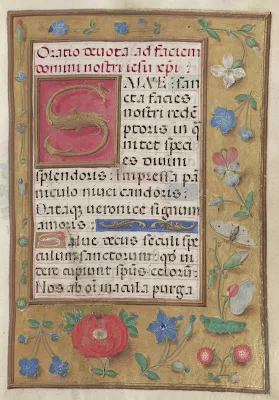 Oratio deuota ad faciem
domini nostri iesu xp̄i.
SALVE san
cta facies
nostri redē
ptoris in q̄
nitet speci
es diuini
splendoris: Impressa pā
niculo niuei candoris:
Dataque veronice signum
amoris:
Salue decus seculi spe
culum sanctorum: qd̄ ui
dere cupiunt spūs celorū:
Nos ab oī macula purga